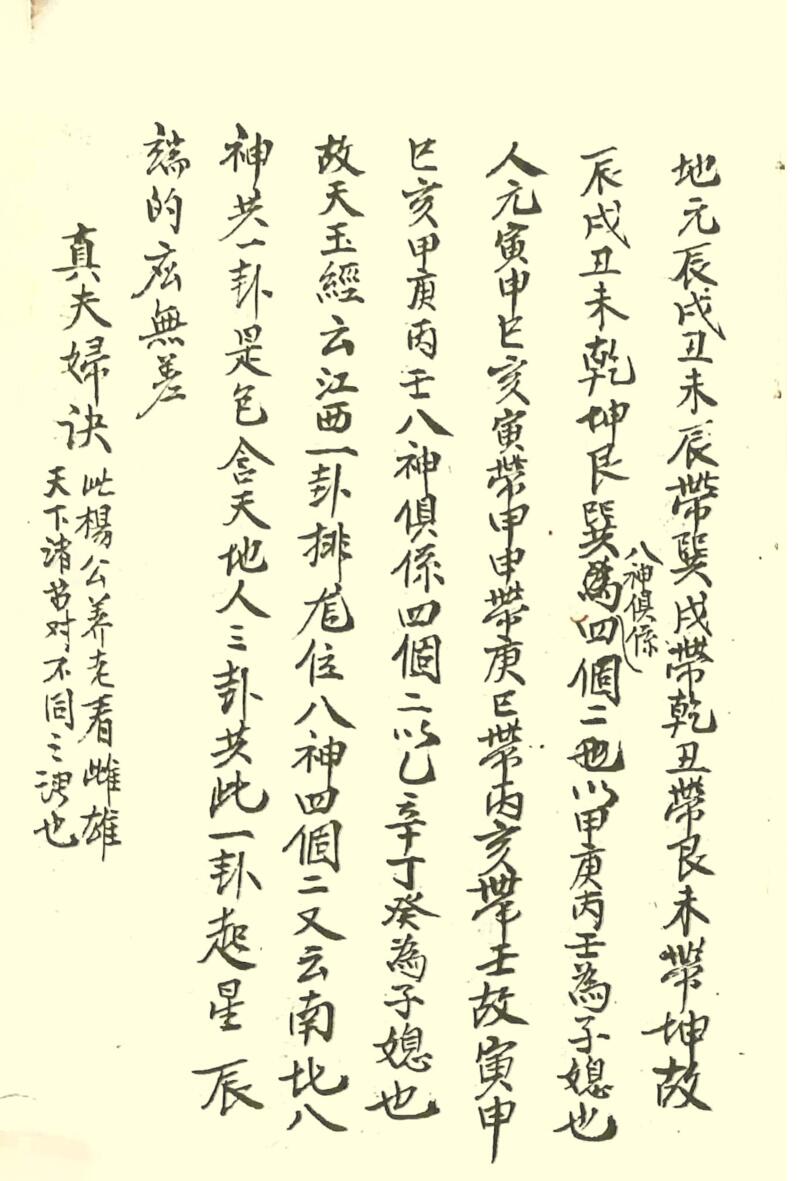 地元辰戌丑未辰帶巽戌帶乾丑帶艮未帶坤故
辰戌丑未乾坤艮巽為四個二也以甲庚丙壬為子媳也
八神俱係
人元寅申巳亥寅帶甲申帶庚巳帶丙亥帶壬故寅申
巳亥甲庚丙壬八神俱係四個二以乙辛丁癸為子媳也
故天玉經云江西一卦排龍位八神四個二又云南北八
神共一卦是包含天地人三卦共此一卦起星辰
端的应無差
真夫婦訣
此楊公养老看雌雄
天下诸书对不同之訣也